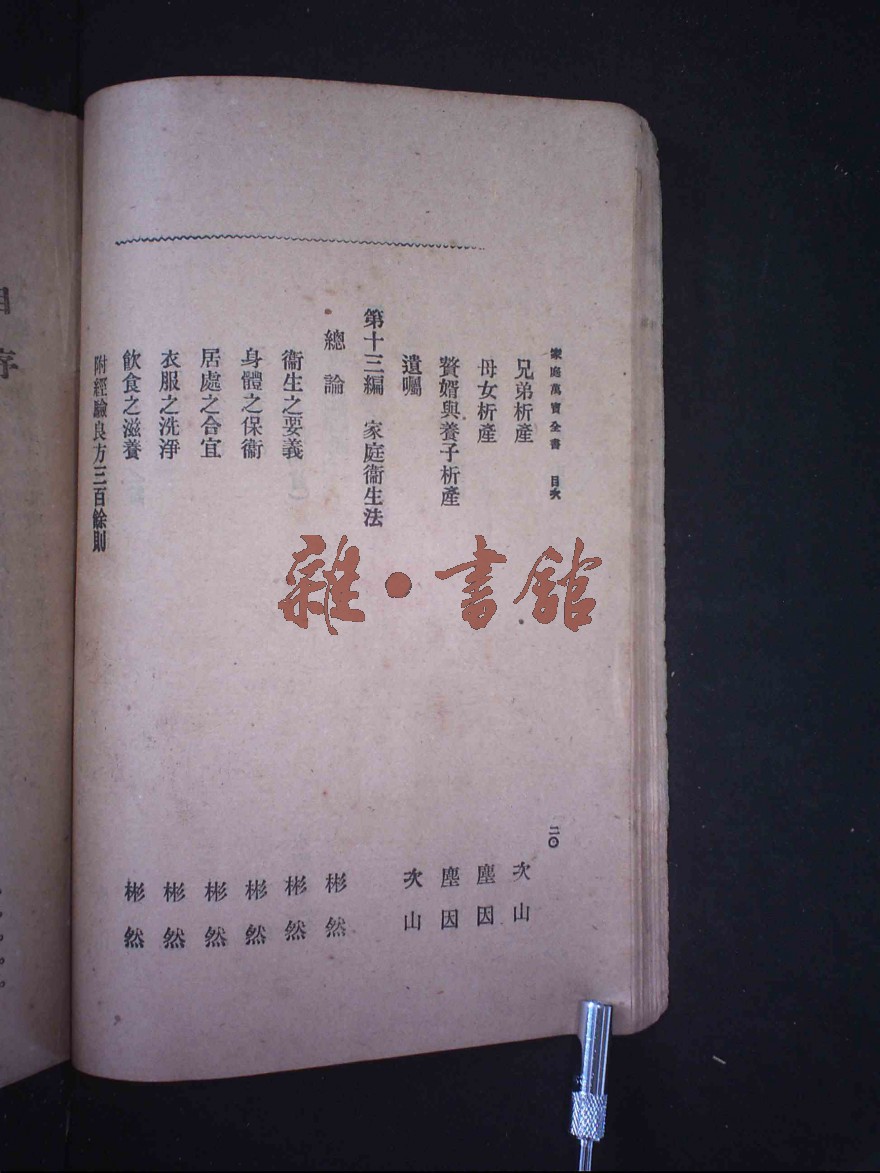 家庭萬寶全書 目次 二〇
兄弟析產 次山
母女析產 塵因
贅婿與養子析產 塵因
遺囑 次山
第十三編 家庭衞生法
總論 彬然
衞生之要義 彬然
身體之保衞 彬然
居處之合宜 彬然
衣服之洗淨 彬然
飲食之滋養 彬然
附經驗良方三百餘則
雜·書館